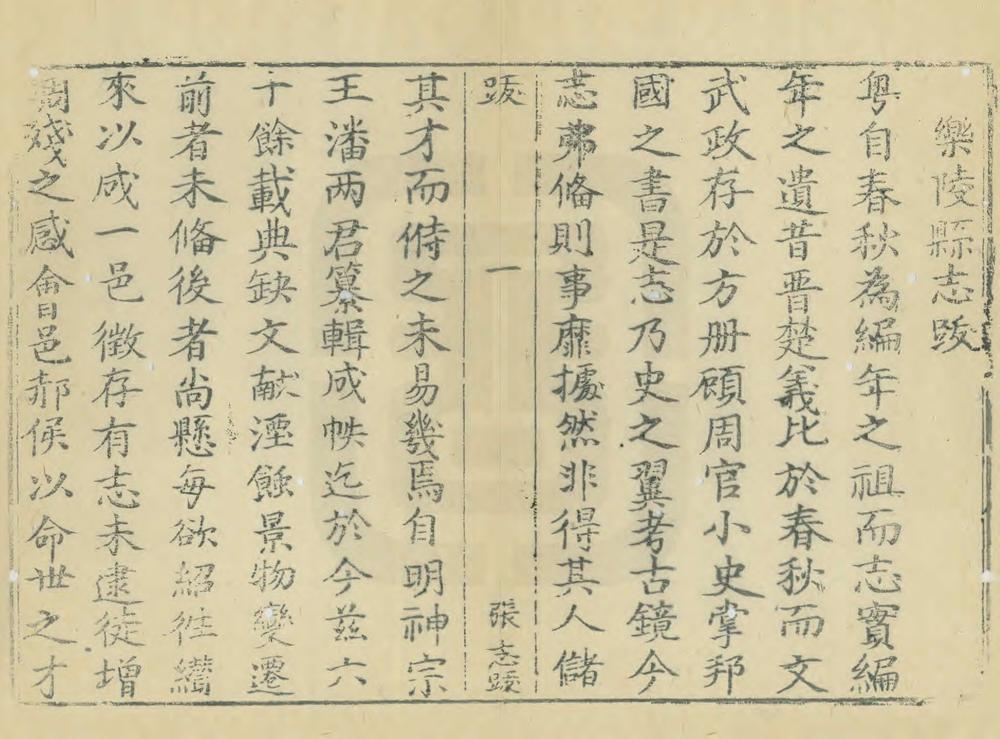 樂陵縣志跋
粤自春秋為編年之祖而志實編
年之遺昔晋楚義比於春秋而文
武政存於方册頋周官小史掌邦
國之書是志乃史之翼考古鏡今
志弗脩則事靡據然非得其人儲
跋 一 張志跋
其才而偫之未易幾焉自明神宗
王潘两君纂輯成帙迄於今兹六
十餘載典缺文献湮蝕景物變遷
前者未脩後者尚懸每欲紹徃纘
來以成一邑徵存有志未逮徒增
凋殘之感會邑郝侯以命世之才